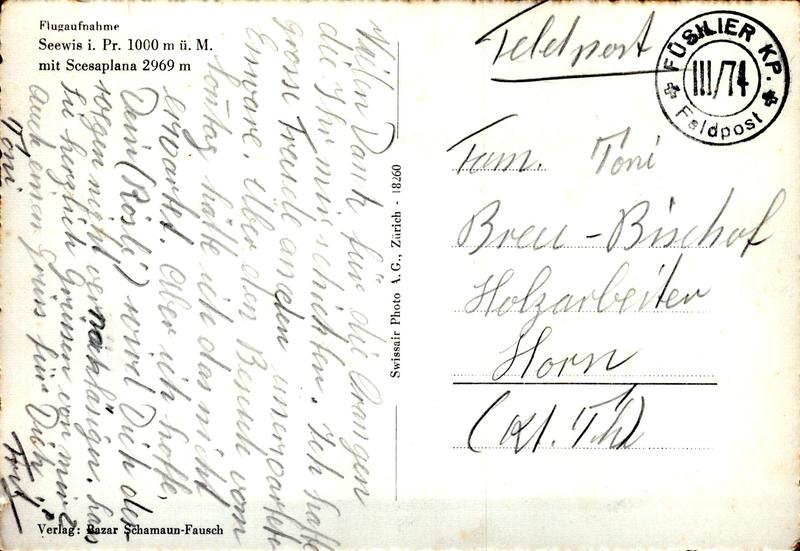 Flugaufnahme
Seewis i. Pr. 1000 m ü. M.
mit Scesaplana 2969 m
Vielen Dank für die Orangen
die Ihr mir schickten. Ich hatte
grosse Freude an den unerwarteten
Über den Besuch vom
Sonntag hätte ich das nicht
erwartet. Aber ich hoffe
Dein (Rösli) wird Dich des-
wegen nicht vernachläsigen. Las
Sie herzlich Grüssen von mir &
auch einen Gruss für Dich
Toni
Verlag: Bazar Schamaun-Fausch
Swissair Photo A. G., Zürich - 18260
Feldpost
FÜSILIER KP.
III/74
Feldpost
Fam. Toni
Breu-Bischof
Holzarbeiter
Horn
(Kt. Th)